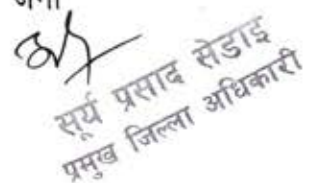 सूर्य प्रसाद सेडाइ
प्रमुख जिल्ला अधिकारी